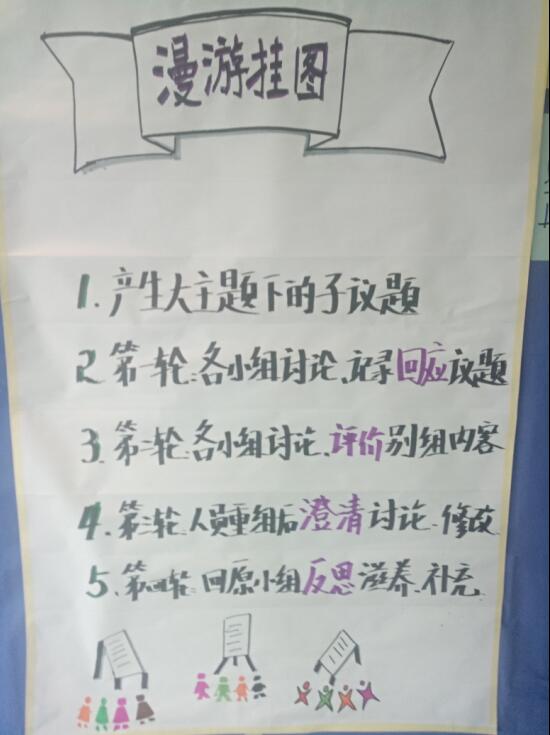 漫游挂图
1. 产生大主题下的子议题
2. 第一轮:各小组讨论、记录回应议题
3. 第二轮:各小组讨论、评价别组内容
4. 第三轮:人员重组后澄清讨论、修改
5、第四轮:回原小组反思滋养、补充